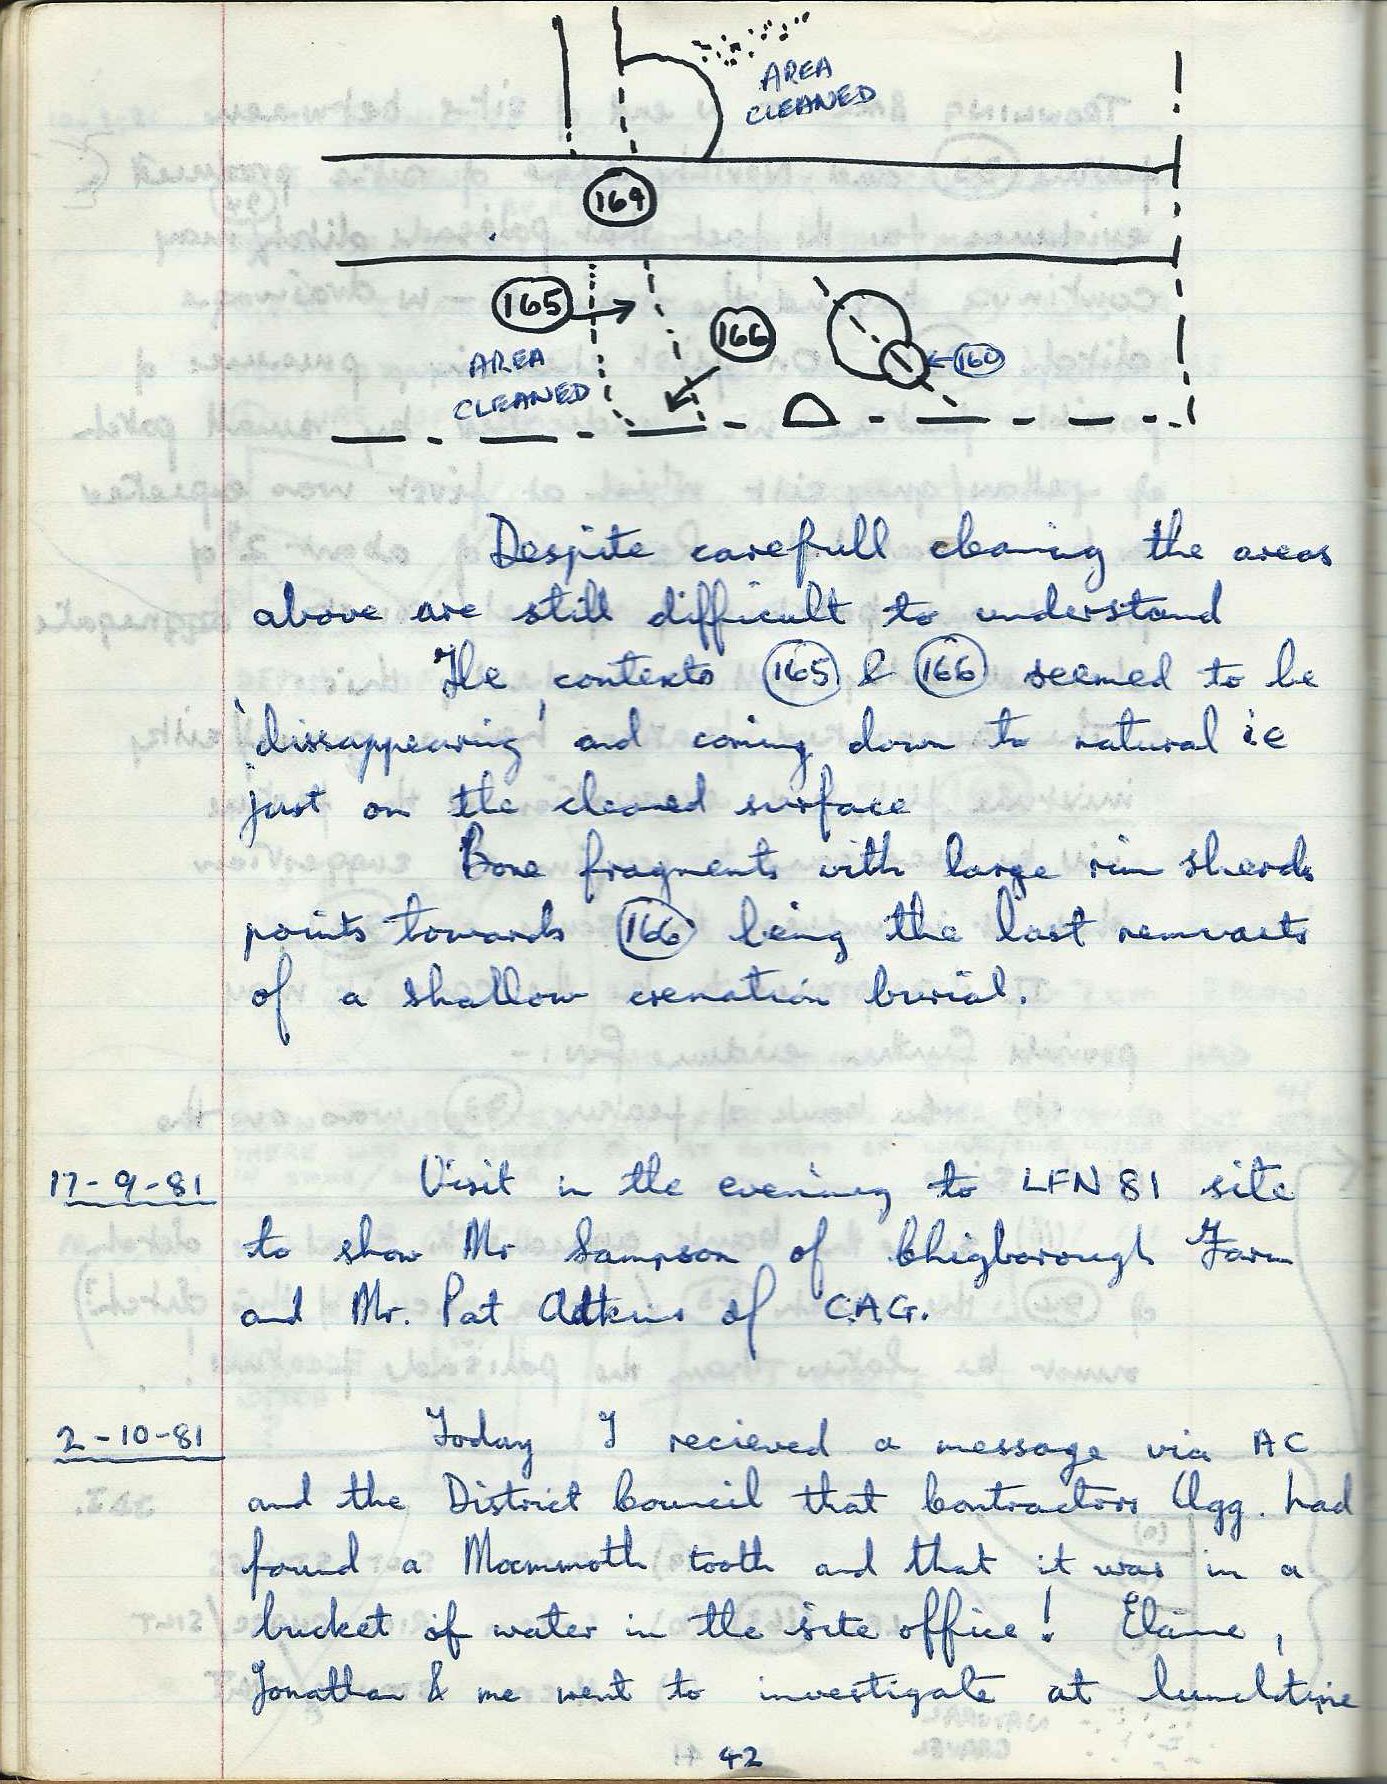 AREA
CLEANED
169
165
166
160
AREA
CLEANED
Despite carefull cleaning the areas
above are still difficult to understand
The contexts 165 & 166 seemed to be
'dissappearing' and coming down to natural ie
just on the cleaned surface
Bone fragments with large rim sherds
points towards 166 being the last remnants
of a shallow cremation burial.
17-9-81 Visit in the evening to LFN 81 site
to show Mr Sampson of Chigborough Farm
and Mr. Pat Adkins of C.A.G.
2-10-81 Today I recieved a message via AC
and the District Council that Contractors Agg. had
found a Mammoth tooth and that it was in a
bucket of water in the site office! Elaine,
Jonathan & me went to investigate at lunchtime
42